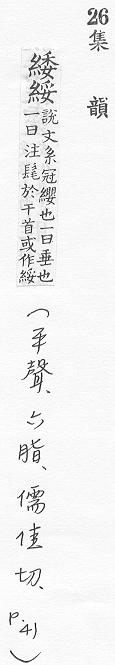 26集韻
緌綏
說文系冠纓也一曰垂也
一曰注髦於干首或作綏
(平聲、六脂、儒佳切、P.41)